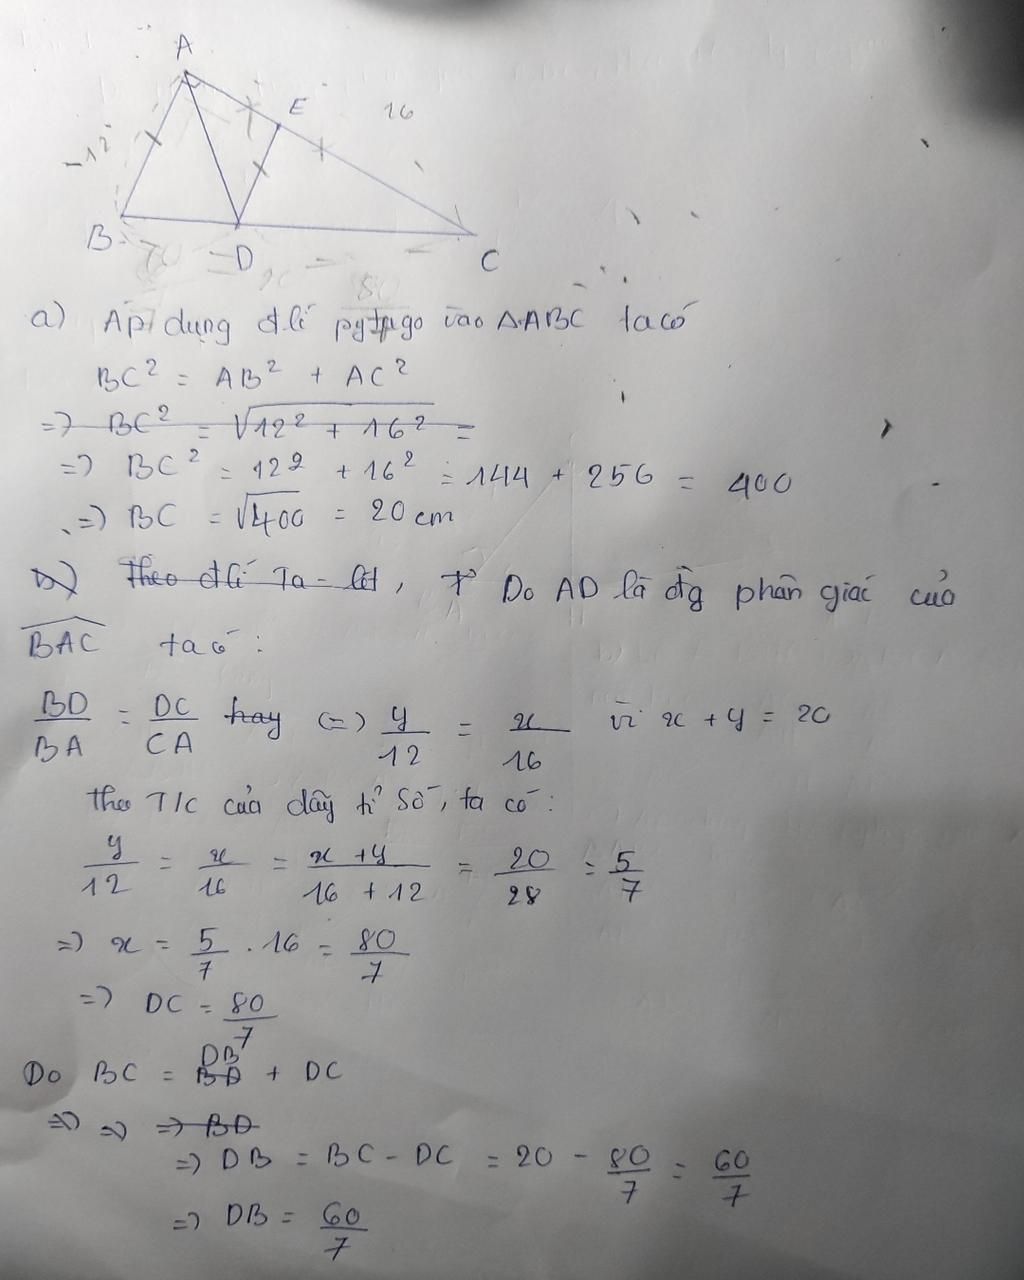 A
E
16
12
B
D
C
80
a) Áp dụng đ lí pytago vào ΔABC ta có
BC² = AB² + AC²
=> BC² = √12² + 16² =
=> BC² = 12² + 16² = 144 + 256 = 400
=> BC = √400 = 20 cm
b) Theo đ lí Ta-lét, Do AD là đg phân giác của
BAC ta có:
BD/BA = DC/CA hay <=> y/12 = x/16 vì x + y = 20
theo T/c của dãy tỉ số, ta có:
y/12 = x/16 = x + y/16 + 12 = 20/28 = 5/7
=> x = 5/7 . 16 = 80/7
=> DC = 80/7
Do BC = BD DB + DC
=> => => BD
=> DB = BC - DC = 20 - 80/7 = 60/7
=> DB = 60/7